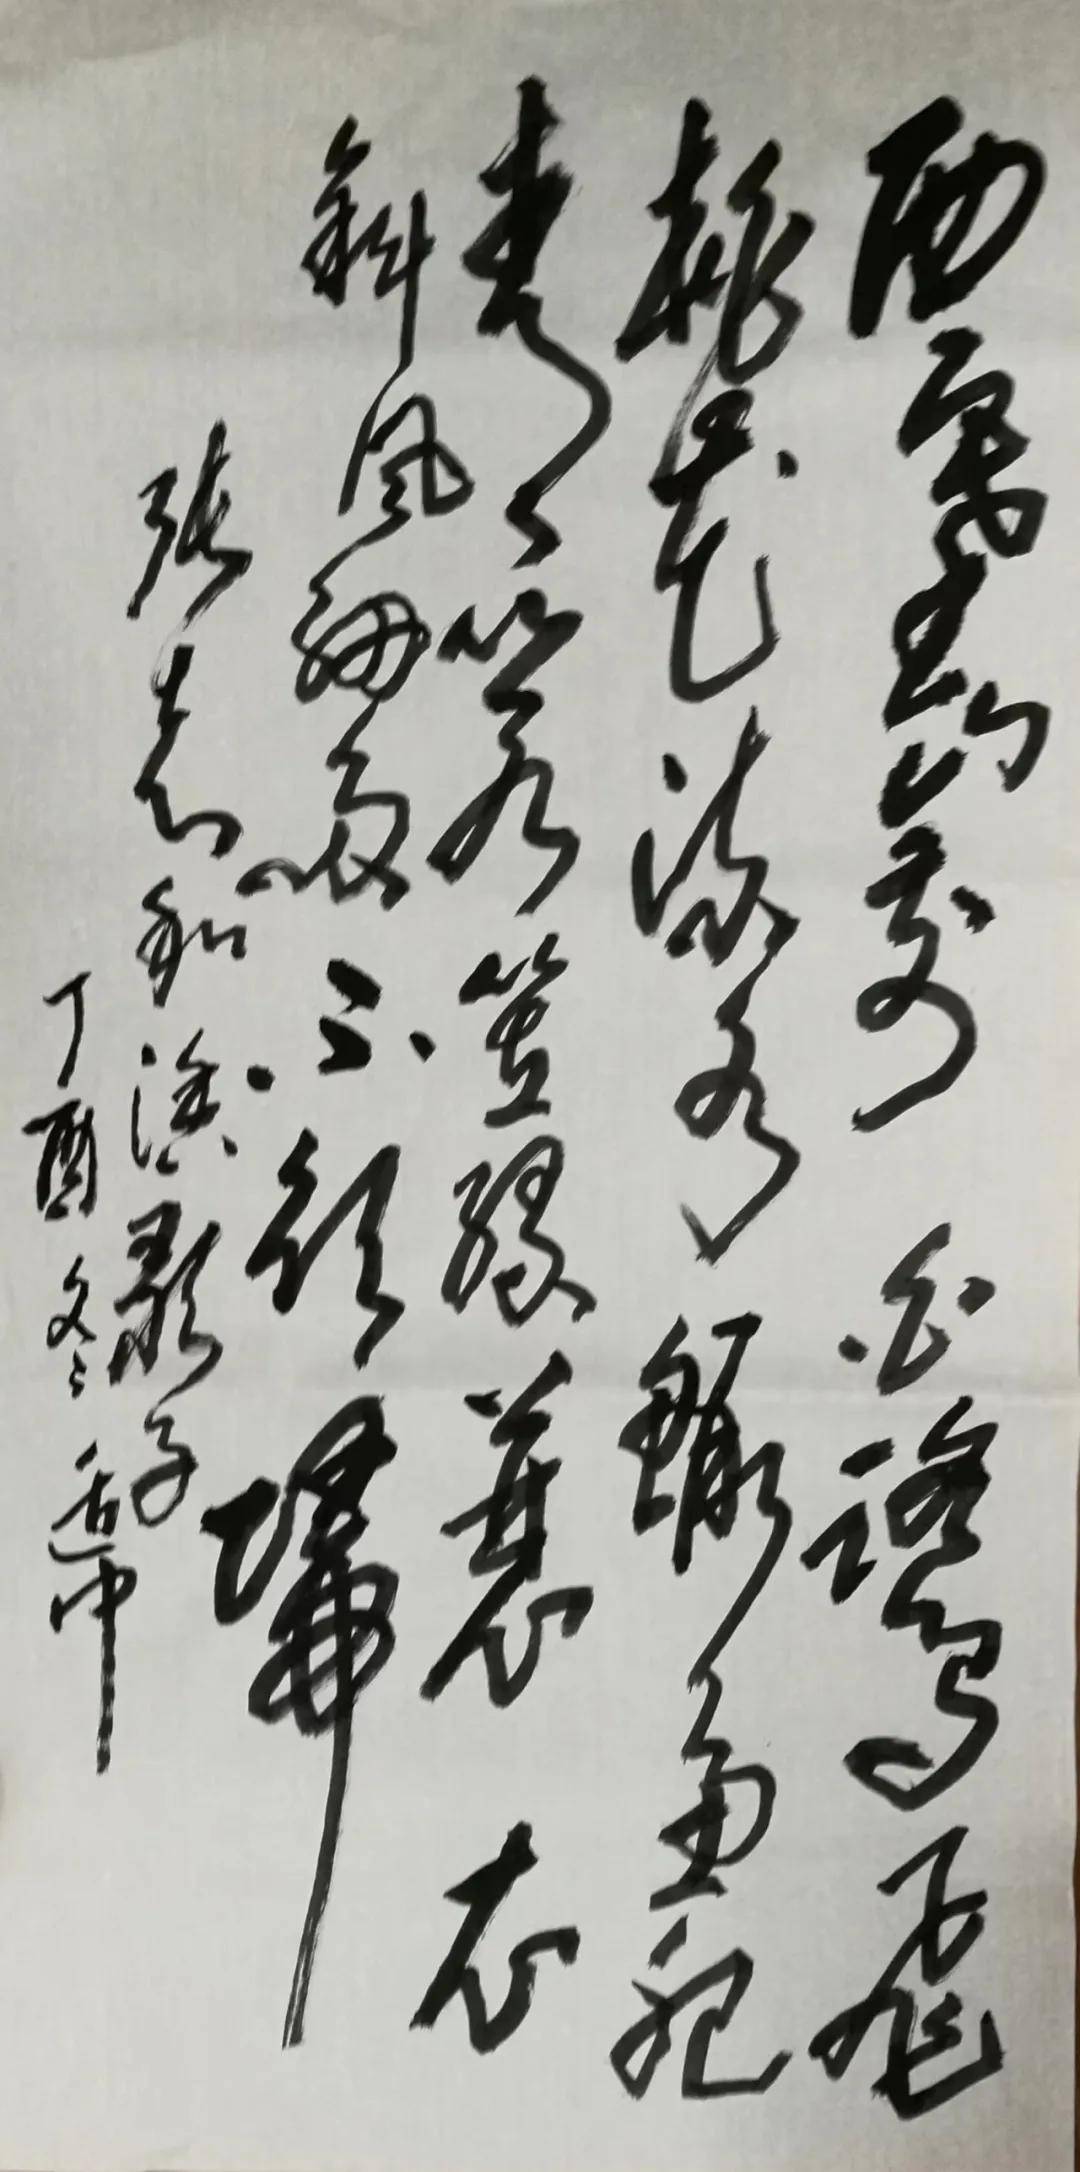 西塞山前白鹭飞
桃花流水鳜鱼肥
青箬笠绿蓑衣
斜风细雨不须归
张志和渔歌子
丁酉冬适中